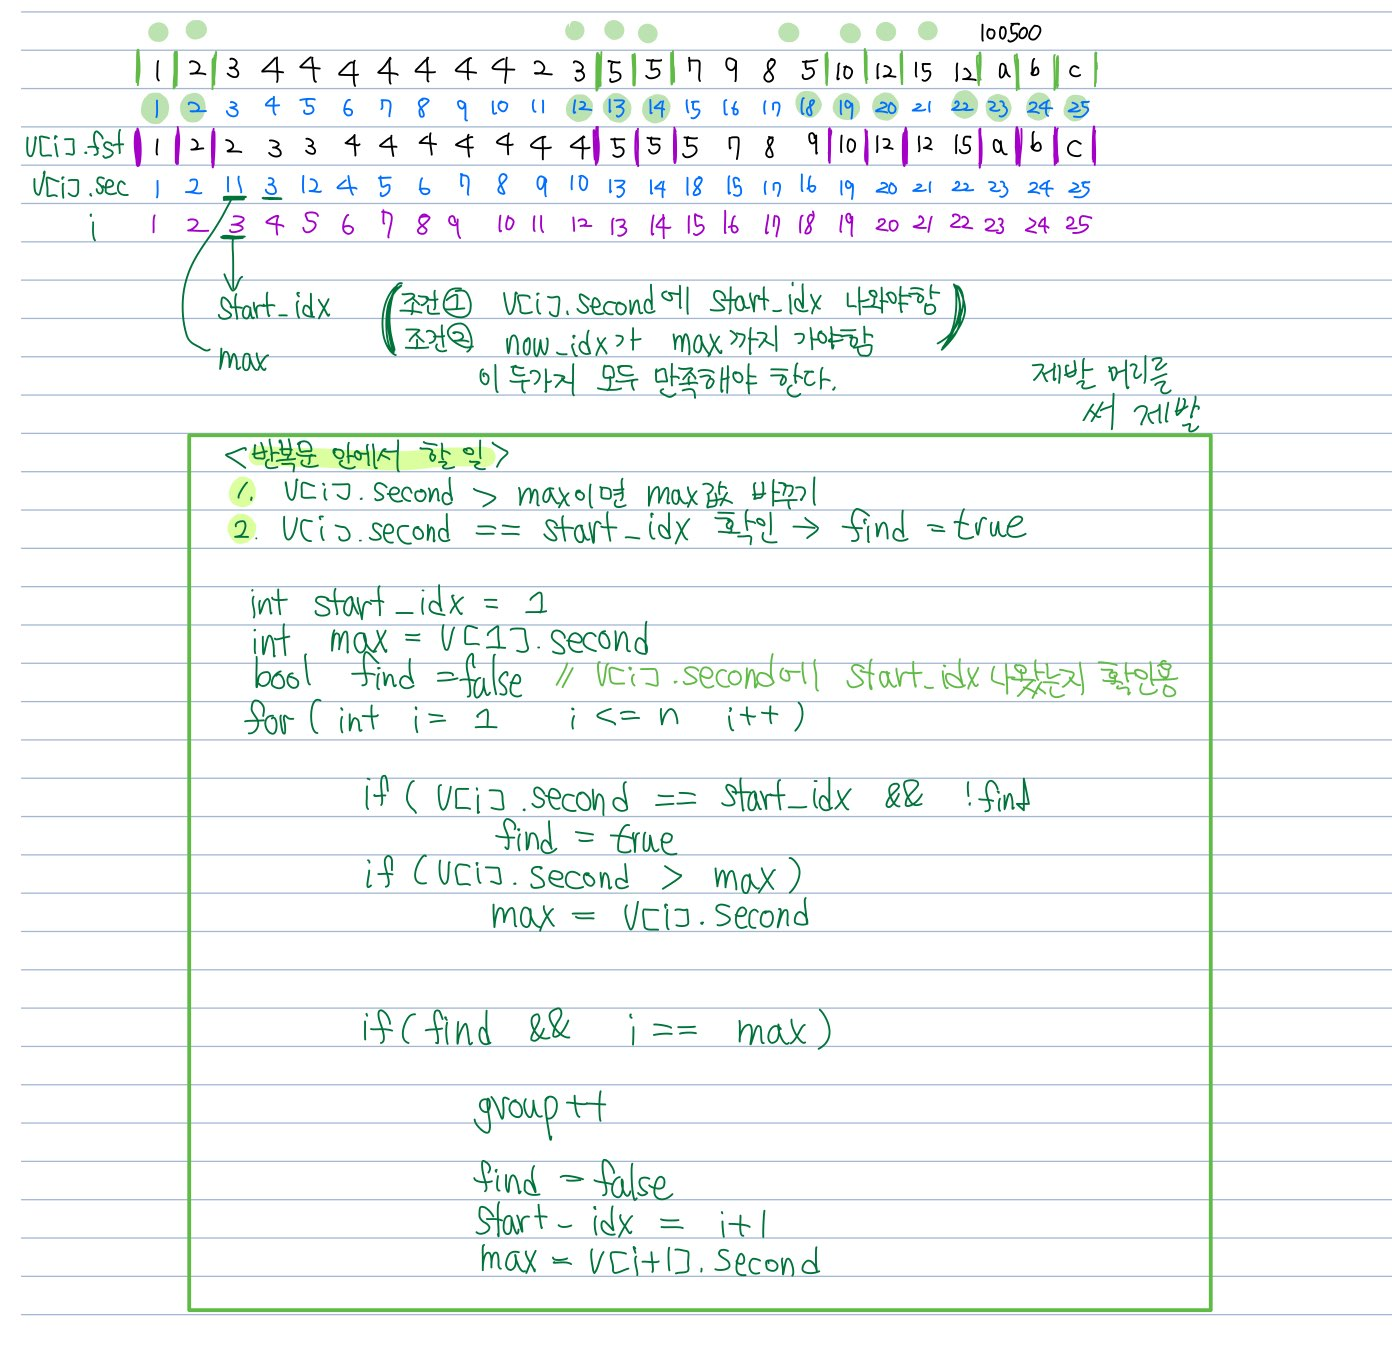 100500
1 2 3 4 4 4 4 4 4 4 2 3 5 5 7 9 8 5 10 12 15 12 a b c
1 2 3 4 5 6 7 8 9 10 11 12 13 14 15 16 17 18 19 20 21 22 23 24 25
v[i].fst 1 2 2 3 3 4 4 4 4 4 4 4 5 5 5 7 8 9 10 12 12 15 a b c
v[i].sec 1 2 11 3 12 4 5 6 7 8 9 10 13 14 18 15 17 16 19 20 21 22 23 24 25
i 1 2 3 4 5 6 7 8 9 10 11 12 13 14 15 16 17 18 19 20 21 22 23 24 25
start_idx
max
(조건① v[i].second에 start_idx 나와야함)
(조건② now_idx가 max까지 가야함)
이 두가지 모두 만족해야 한다.
제발 머리를
써 제발
<반복문 안에서 할 일>
1. v[i].second > max이면 max값 바꾸기
2. v[i].second == start_idx 확인 → find = true
int start_idx = 1
int max = v[1].second
bool find = false // v[i].second에 start_idx 나왔는지 확인용
for ( int i = 1 i <= n i++ )
if ( v[i].second == start_idx && !find
find = true
if (v[i].second > max)
max = v[i].second
if (find && i == max)
group++
find = false
start_idx = i+1
max = v[i+1].second